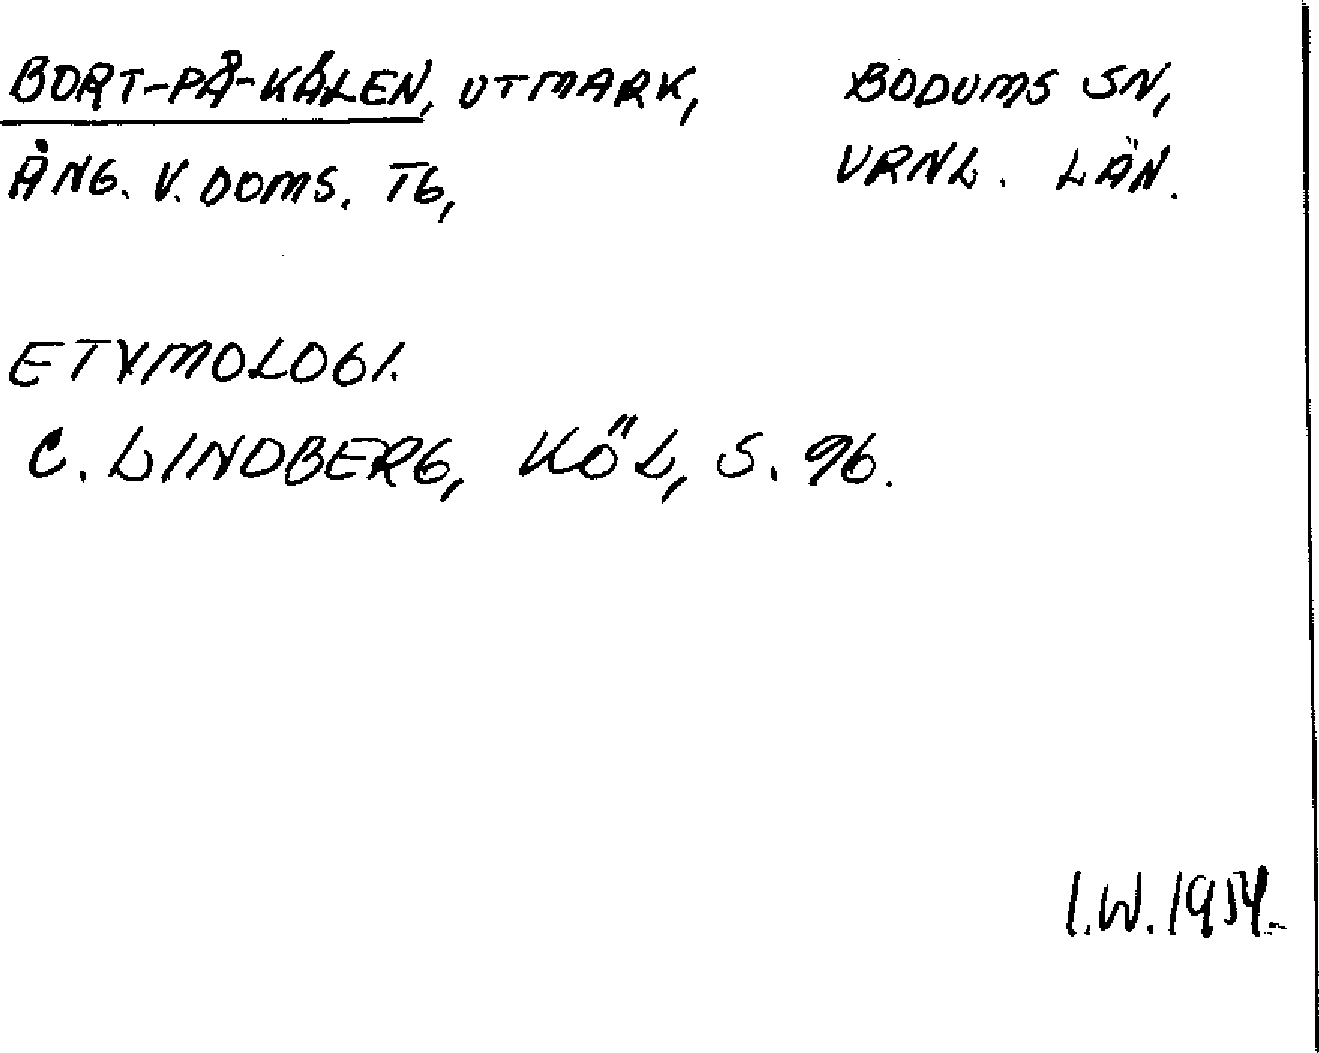 BORT-PÅ-KÅLEN, UTMARK, BODUMS SN,
ÅNG. V. DOMS. TG, VRNL. LÄN.
ETYMOLOGI.
C. LINDBERG, KÖL, S. 96.
I.W. 1954.